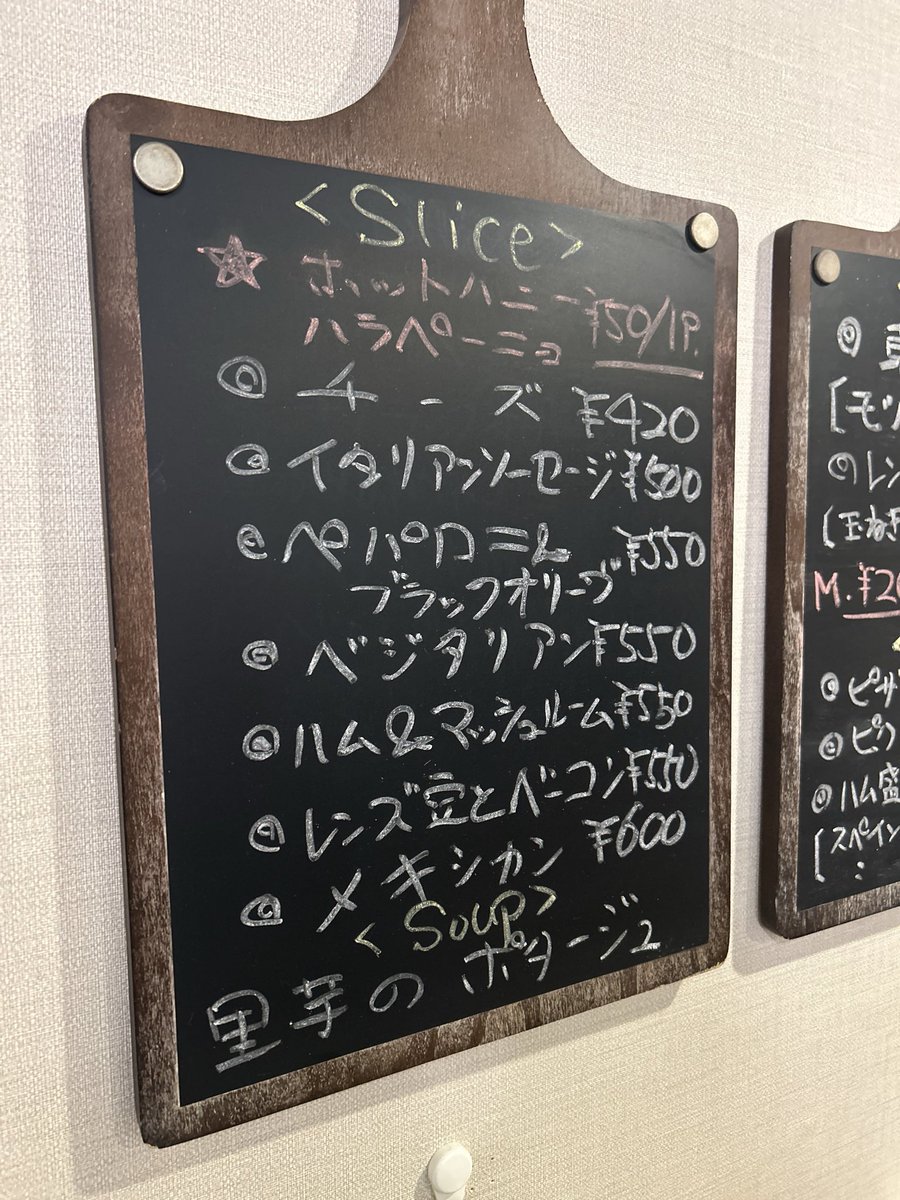 <Slice>
☆ ホットハニー ¥50/1P.
ハラペーニョ
◎ チーズ ¥420
◎ イタリアンソーセージ ¥500
◎ ペパロニ&
ブラックオリーブ ¥550
◎ ベジタリアン ¥550
◎ ハム&マッシュルーム ¥550
◎ レンズ豆とベーコン ¥550
◎ メキシカン ¥600
<Soup>
里芋のポタージュ
◎
[モッ
のレン
[玉ねぎ
M. ¥20
◎ ピザ
◎ ピク
◎ ハム盛
[スペイン